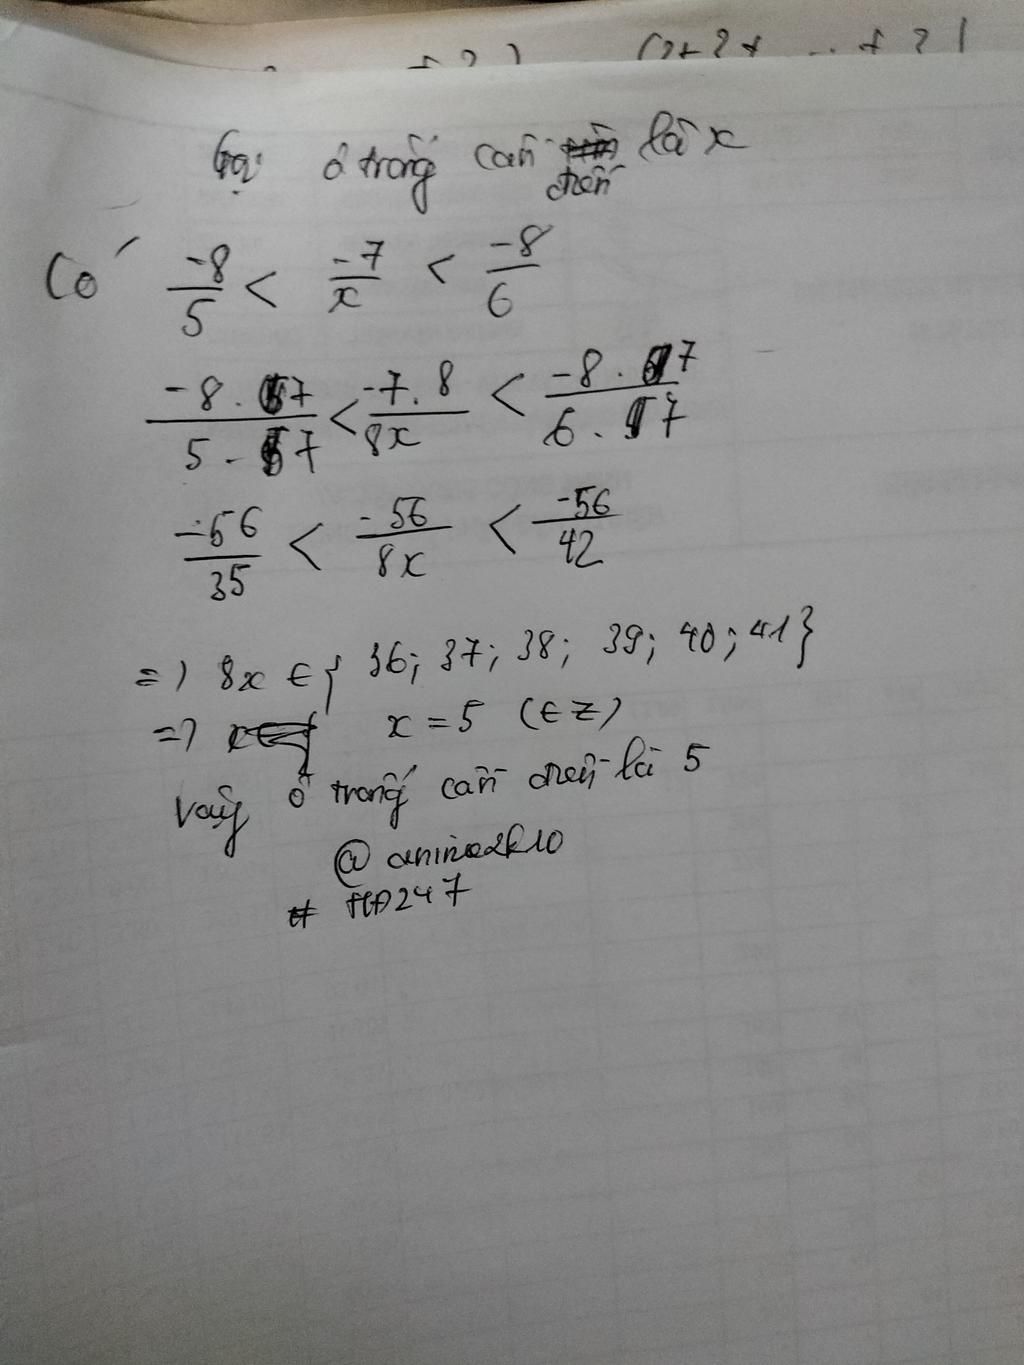 Gọi ô trống cần điền là x
Có -8/5 < -7/x < -8/6
-8.7/5.7 < -7.8/8x < -8.7/6.7
-56/35 < -56/8x < -56/42
=> 8x ∈ { 36; 37; 38; 39; 40; 41}
=> x = 5 (∈ Z)
Vậy ô trống cần điền là 5